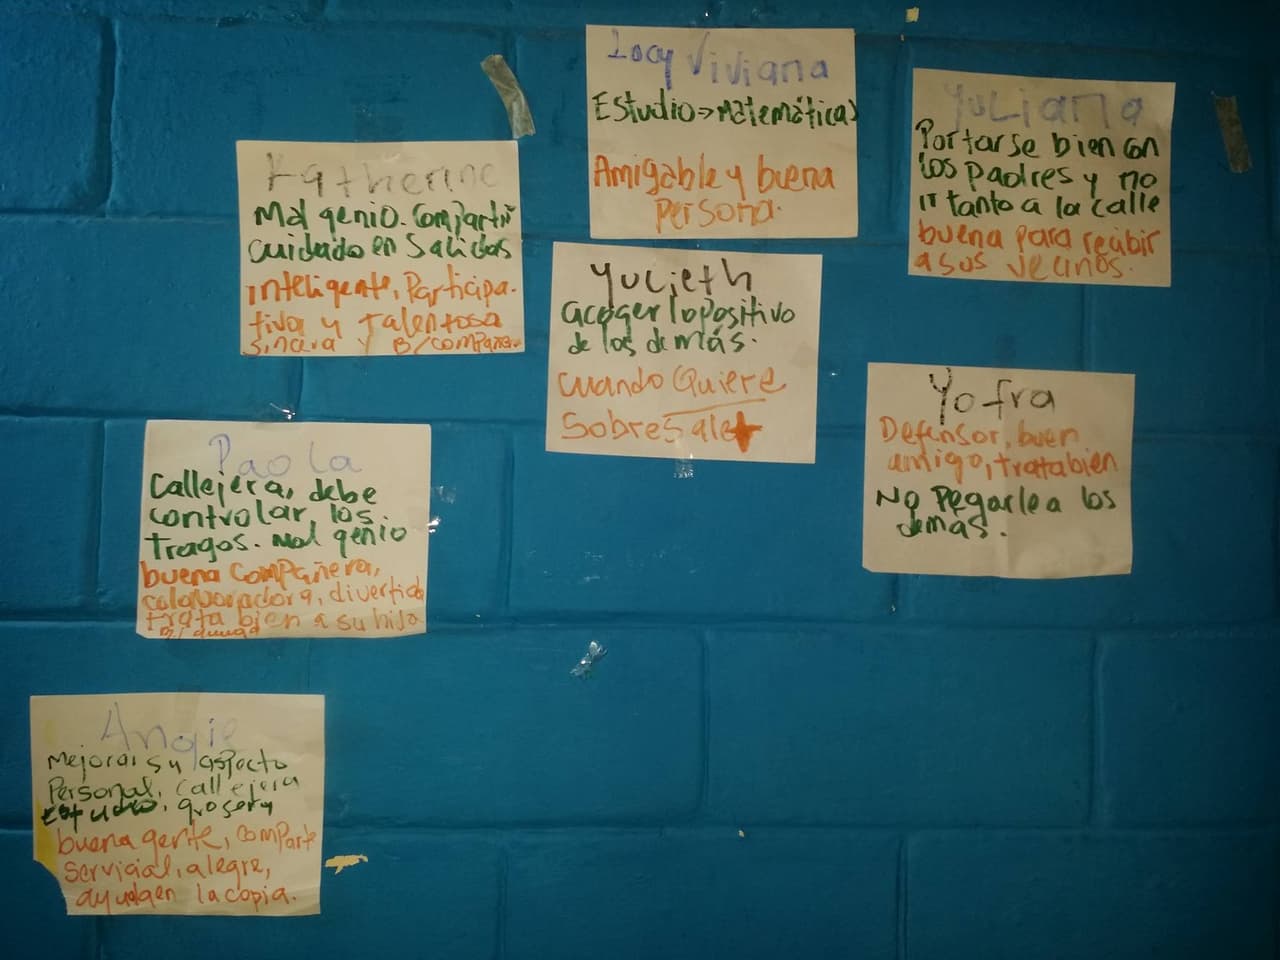 LoCy Viviana
Estudio → Matemáticas
Amigable y buena
Persona.
Yuliana
Portarse bien con
los padres y no
ir tanto a la calle
buena para recibir
a sus vecinos.
Katherine
Mal genio. Compartir
cuidado en salidas
inteligente, Participa-
tiva y Talentosa
sincera y B/compañera
Yulieth
acoger lo positivo
de los demás.
cuando Quiere
Sobresale
Yofra
Defensor, buen
amigo, trata bien
No Pegarle a los
demas.
Paola
Callejera, debe
controlar los
tragos. Mal genio
buena compañera,
colaboradora, divertida
trata bien a su hija
B/amiga
Angie
Mejorar su aspecto
Personal, callejera
Estudio, grosera
buena gente, comparte
servicial, alegre,
ayuda en la copia.